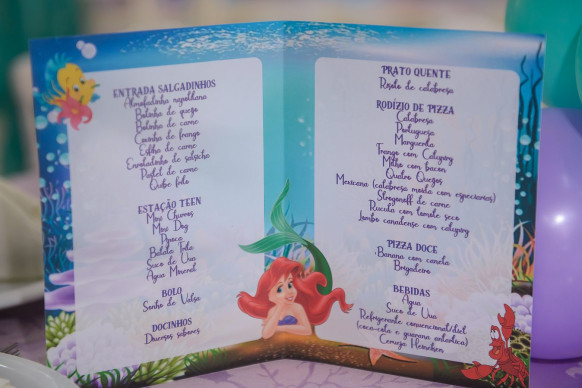 ENTRADA SALGADINHOS
Almofadinha napolitana
Bolinha de queijo
Bolinha de carne
Coxinha de frango
Esfiha de carne
Enroladinho de salsicha
Pastel de carne
Quibe frito
ESTAÇÃO TEEN
Mini Churros
Mini Dog
Pipoca
Batata Frita
Suco de Uva
Água Mineral
BOLO
Sonho de Valsa
DOCINHOS
Diversos sabores
PRATO QUENTE
Risoto de calabresa
RODÍZIO DE PIZZA
Calabresa
Portuguesa
Marguerita
Frango com Catupiry
Milho com bacon
Quatro Queijos
Mexicana (calabresa moída com especiarias)
Strogonoff de carne
Rúcula com tomate seco
Lombo canadense com catupiry
PIZZA DOCE
Banana com canela
Brigadeiro
BEBIDAS
Água
Suco de Uva
Refrigerante convencional/diet
(coca-cola e guaraná antártica)
Cerveja Heineken